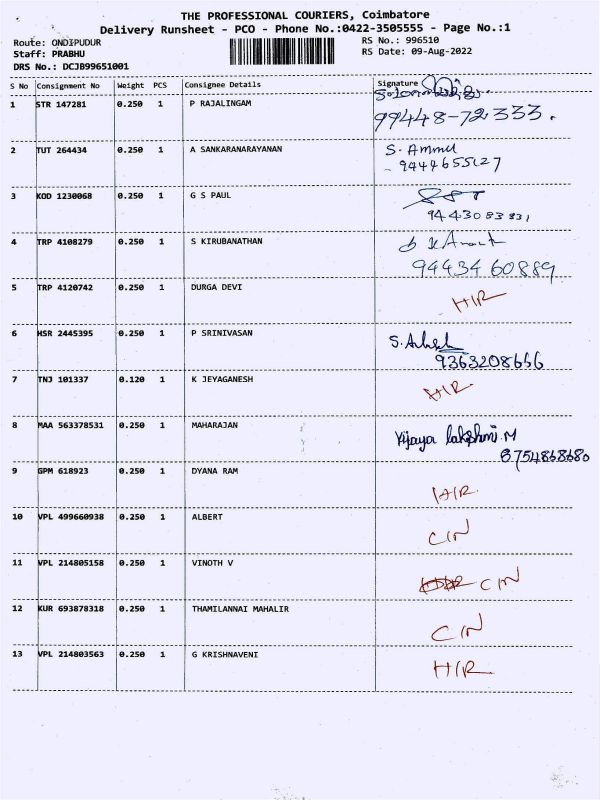 THE PROFESSIONAL COURIERS, Coimbatore
Delivery Runsheet - PCO - Phone No.:0422-3505555 - Page No.:1
Route: ONDIPUDUR
Staff: PRABHU
DRS No.: DCJB99651001
RS No.: 996510
RS Date: 09-Aug-2022
S No Consignment No Weight PCS Consignee Details Signature
1 STR 147281 0.250 1 P RAJALINGAM
99448-72333.
2 TUT 264434 0.250 1 A SANKARANARAYANAN S. Ammu
- 9444655127
3 KOD 1230068 0.250 1 G S PAUL
9443083831
4 TRP 4108279 0.250 1 S KIRUBANATHAN
9443460889
5 TRP 4120742 0.250 1 DURGA DEVI
HIR
6 HSR 2445395 0.250 1 P SRINIVASAN
9363208666
7 TNJ 101337 0.120 1 K JEYAGANESH
HIR.
8 MAA 563378531 0.250 1 MAHARAJAN
Vijaya lakshmi.M
8754868680
9 GPM 618923 0.250 1 DYANA RAM
HIR.
10 VPL 499660938 0.250 1 ALBERT
CIN
11 VPL 214805158 0.250 1 VINOTH V
CIN
12 KUR 693878318 0.250 1 THAMILANNAI MAHALIR
CIN
13 VPL 214803563 0.250 1 G KRISHNAVENI
HIR